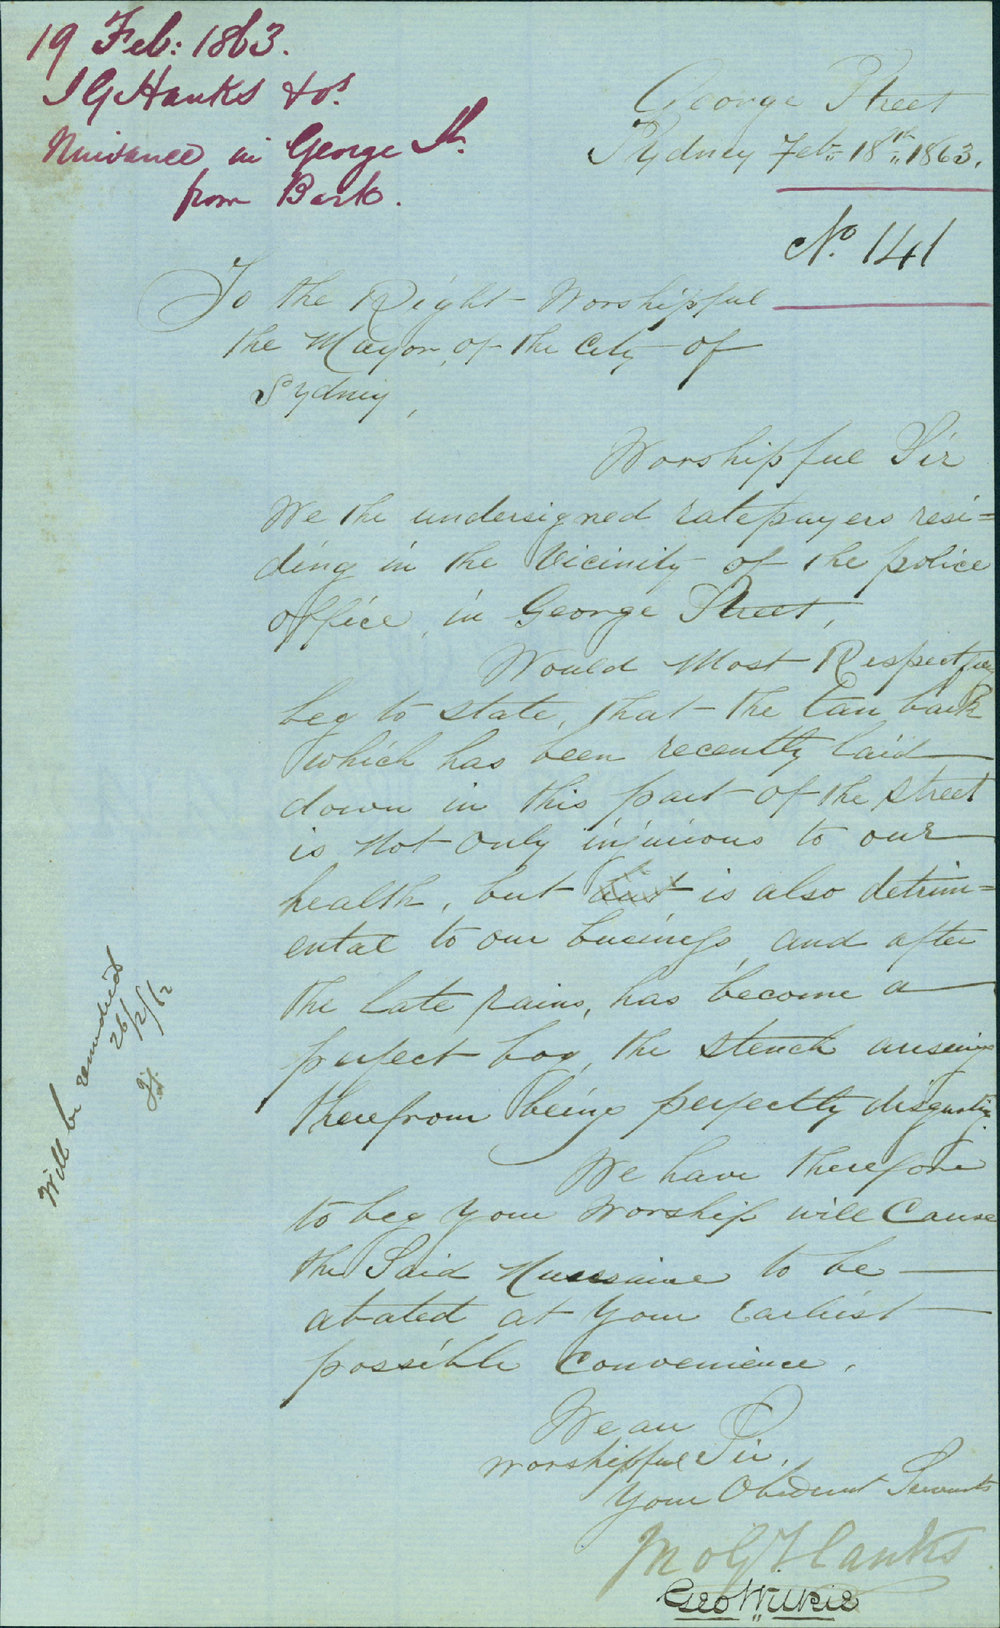 19 Feb: 1863.
J G Hanks & ors.
Nuisance in George St.
from Bark.
George Street
Sydney Feb. 18th 1863.
No. 141
To the Right Worshipful
the Mayor, of the City of
Sydney,
Worshipful Sir
We the undersigned ratepayers resi=
ding in the Vicinity of the police
office, in George Street,
Would Most Respectfully
beg to state, that the tan bark
which has been recently laid
down in this part of the street
is not only injurious to our
health, but is also detrim=
ental to our business, and after
the late rains, has become a
perfect bog, the stench arising
therefrom being perfectly disgusting
We have therefore
to beg your Worship will Cause
the Said to be
abated at your earliest
possible Convenience.
We are
Worshipful Sir,
Your Obedient Servants
Hanks
Geo Wilkie
Will be remedied
26/2/62